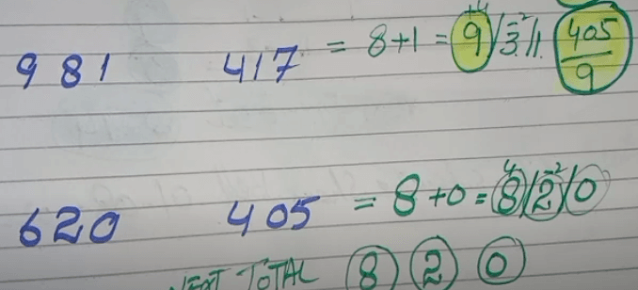 981 417 = 8+1 = 9/3/1 405/9
620 405 = 8+0 = 8/2/0
NEXT TOTAL 8 2 0